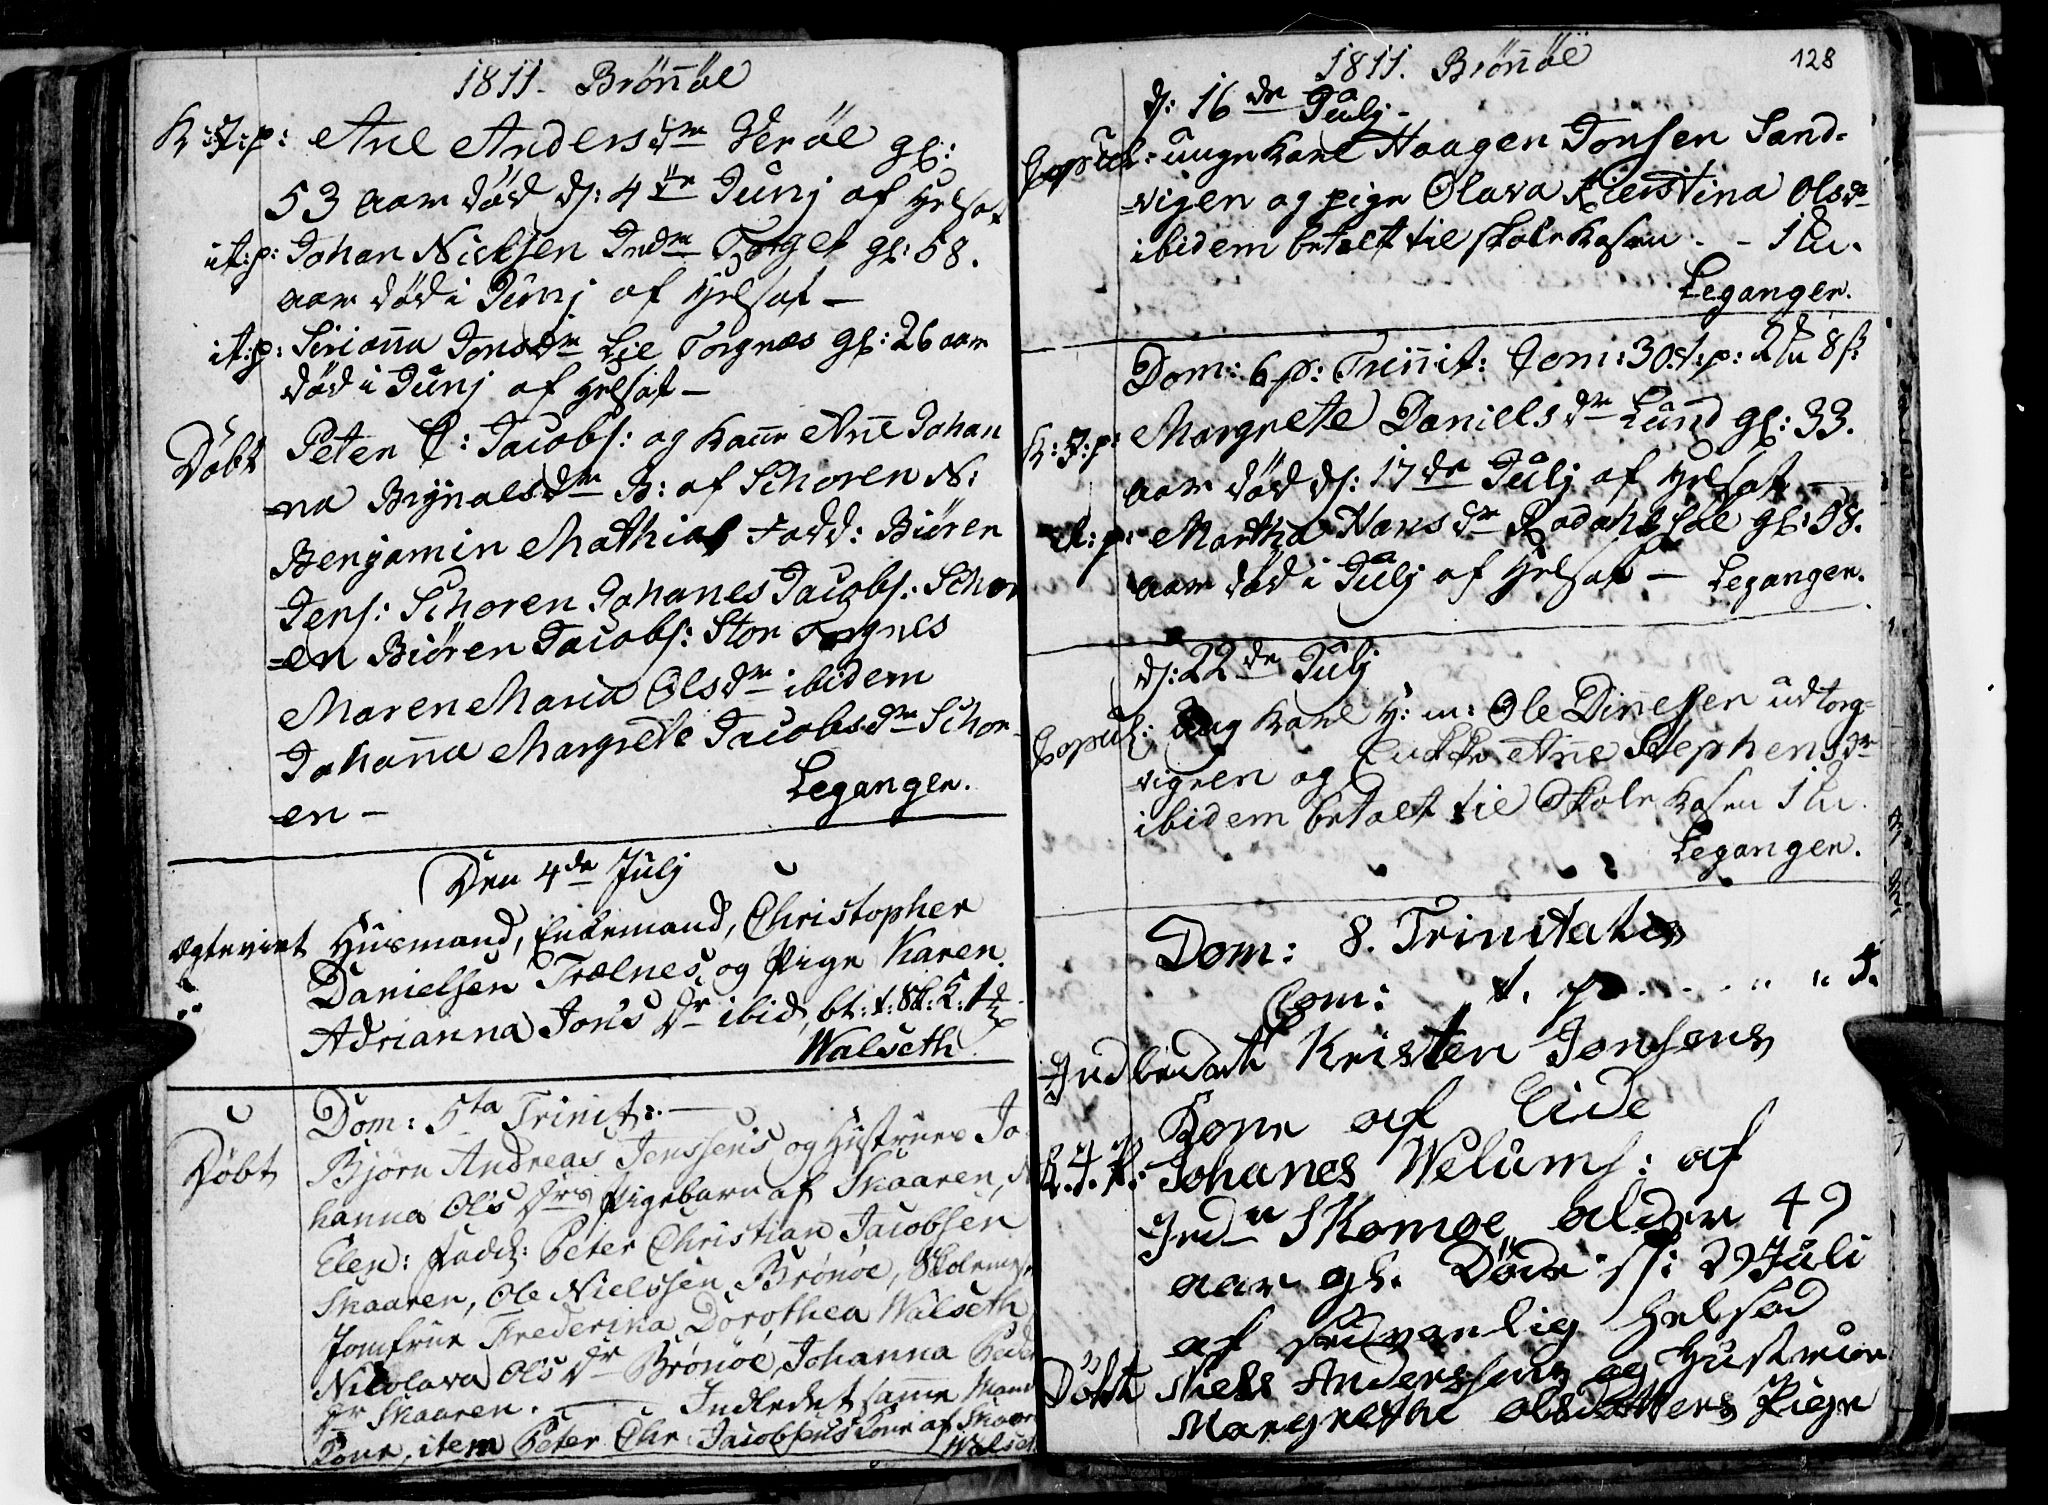 1811. Brönöe
K: J: p: Ane Andersdr Verøe gl:
53 aar død d: 4de Junj af Helsot
it: p: Johan Nielsen Indr Torget gl: 58.
aar død i Junj af Helsot —
it: p: Sirianna Jonsdr Lie Torgnæs gl: 26 aar
død i Junj af Helsot —
Döbt Peter C: Jacobs: og Kone Ane Johan
=na Brynalsdr B: af Schoren N:
Benjamin Mathias Fadd: Biören
Jens: Schoren Johanes Jacobs: Schor
=en Biören Jacobs: Stor Torgnes
Maren Maria Olsdr ibidem
Johanna Margrete Jacobsdr Schor-
=en — Legangen.
Den 4de Julj
Ægteviet Husmand, Enkemand, Christopher
Danielsen Trælnes, og Pige Karen
Adrianna Jons Dr ibid, bt: t: Sk: K: 1
Walseth
Dom: 5ta Trinit: —
Döbt Björn Andreas Jenssens og Hustrues Jo-
hanna Ols Drs Pigebarn af Skaaren,
Elen: Fadd: Peter Christian Jacobsen
Skaaren, Ole Nielssen Brönöe,
Jomfrue Frederika Dorothea Walseth
Nicolava Ols Dr Brönöe, Johanna Peder
Dr Skaaren. — Indledet samme Mands
Kone, item Peter Chr: Jacobsens Kone af Skaar
Walset
1811. Brönöe 128
d: 16de Julj -
Copul: unge Karl Haagen Jonsen Sand-
=vigen og pige Olava Kierstina Olsdr
ibidem betalt til skole Kasen - - 1
Legangen.
Dom: 6 p: Trinnit: Com: 30. t: p: 2 8 s
K: J: p: Margrete Daniels dr Lund gl: 33.
aar død d: 17de Julj af Helsot —
it: p: Martha Hans dr gl: 58.
aar død i Julj af Helsot — Legangen.
d: 22de Julj
Copul: Ung Karl H: m: Ole Dinesen udtorg-
=vigen og Enke Ane Stephensdr
ibidem betalt til Skole Kasen 1
Legangen.
Dom: 8. Trinitatis
Com: t. p. . . . " " 5.
Indledt Kristen Jonsens
Kone af Eide
K. J. P: Johanes Welums: af
Indr Skomoe alder 49
aar gl. Döde d: 29 Juli
af sedvanlig Helsod
Döbt Niels Anderssens og Hustrue
Margrethe olsdatters Pige